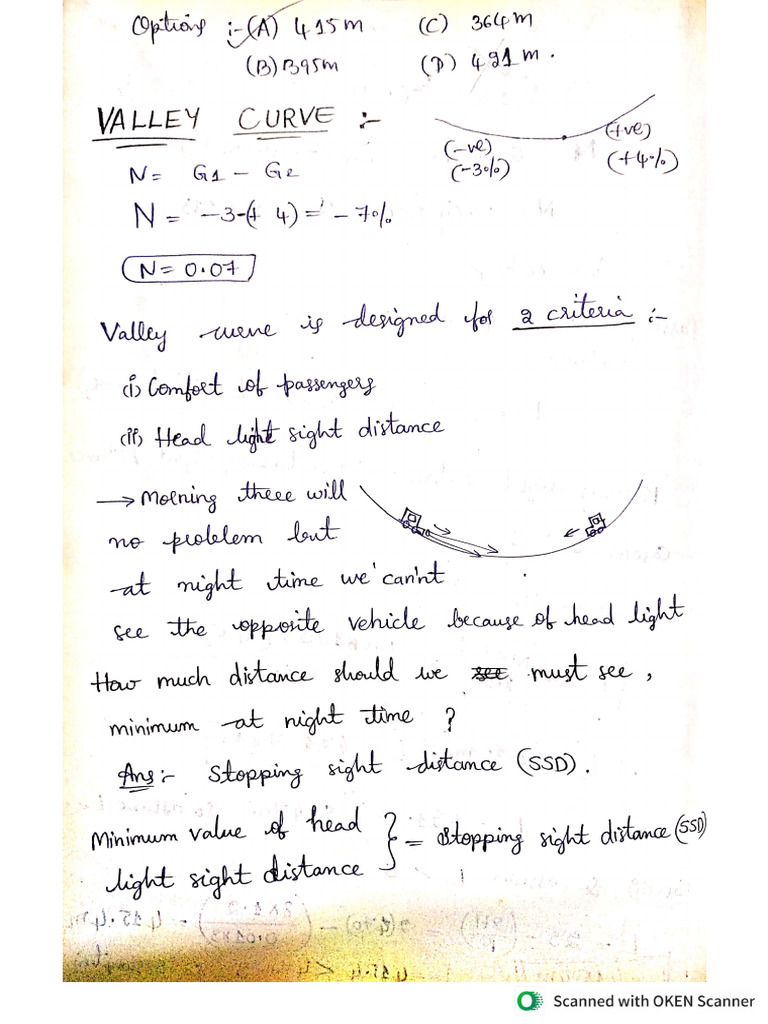 Options :- (A) 415m (C) 364m
(B) 395m (D) 421m.
VALLEY CURVE :-
(-ve) (+ve)
(-3%) (+4%)
N = G1 - G2
N = -3-(+4) = -7%
N = 0.07
Valley curve is designed for 2 criteria :-
(i) Comfort of passengers
(ii) Head light sight distance
→ Morning there will
no problem but
at night time we can'nt
see the opposite vehicle because of head light
How much distance should we see must see,
minimum at night time ?
Ans :- Stopping sight distance (SSD).
Minimum value of head
light sight distance } = Stopping sight distance (SSD)
Scanned with OKEN Scanner